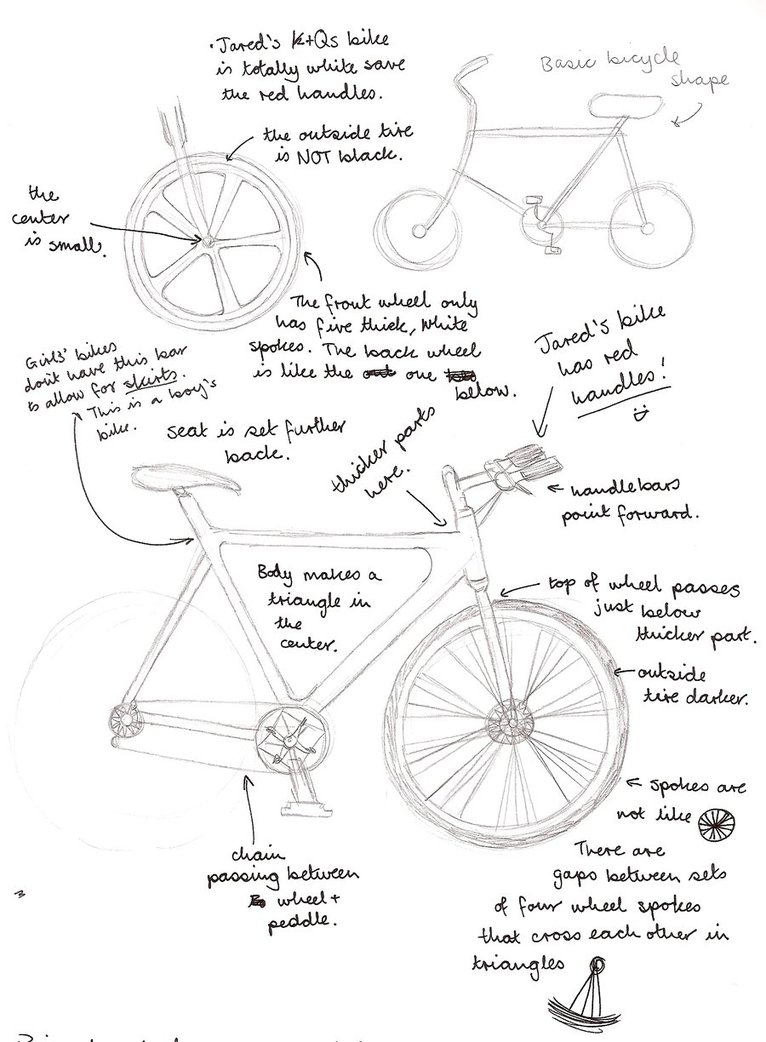 ·Jared's K+Qs bike
is totally white save
the red handles.
Basic bicycle
shape
the outside tire
is NOT black.
the
center
is small.
The front wheel only
has five thick, white
spokes. The back wheel
is like the one
below.
Girls' bikes
don't have this bar
to allow for skirts.
This is a boy's
bike.
Jared's bike
has red
handles!
seat is set further
back.
thicker parts
here.
handlebars
point forward.
Body makes a
triangle in
the
center.
top of wheel passes
just below
thicker part.
outside
tire darker.
spokes are
not like
There are
gaps between sets
of four wheel spokes
that cross each other in
triangles
chain
passing between
wheel +
peddle.